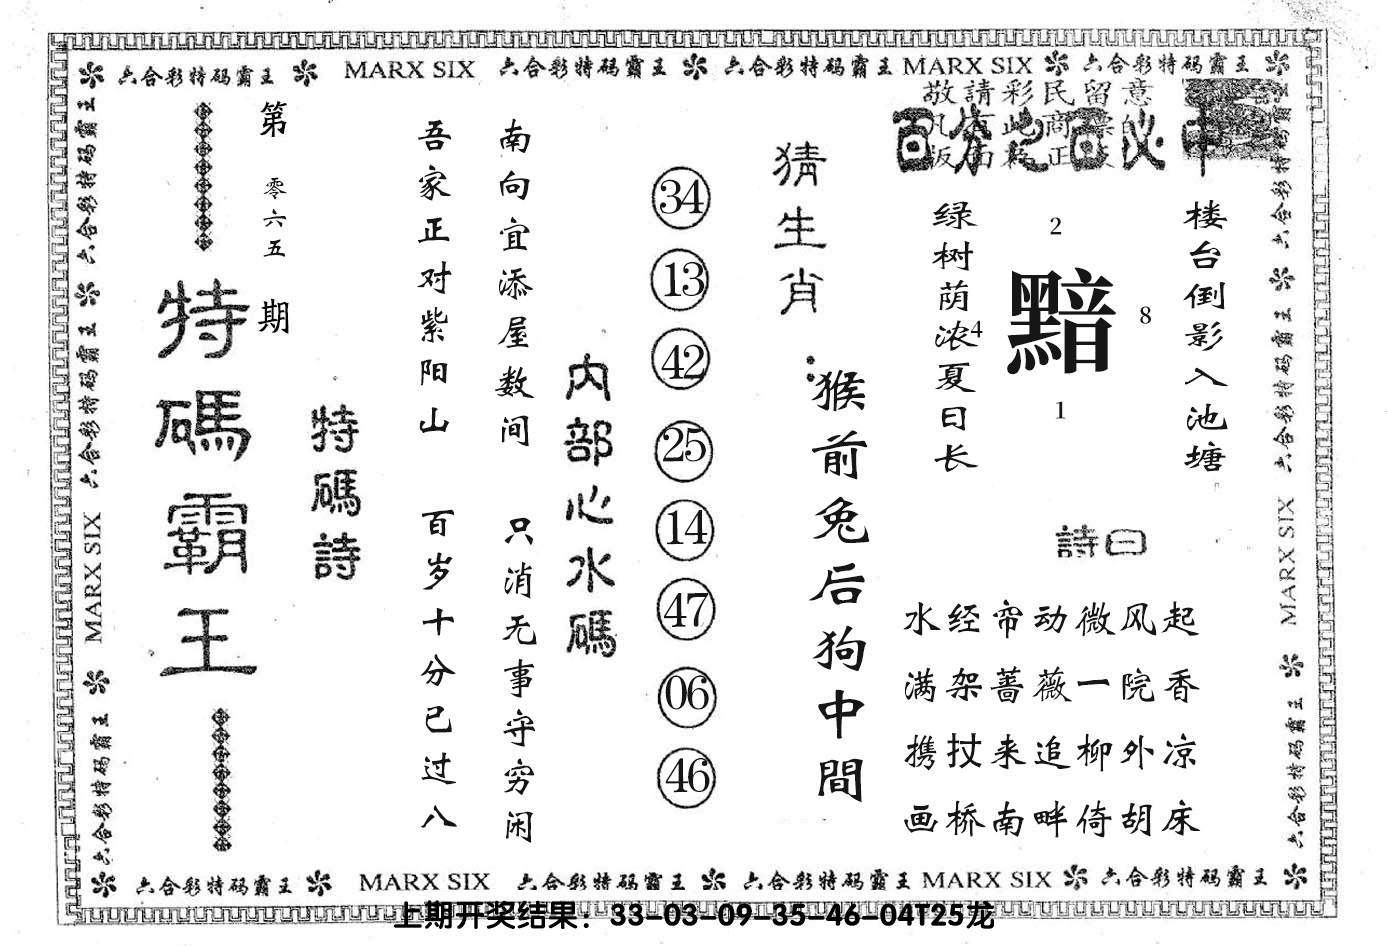 六合彩特码霸王 MARX SIX 六合彩特码霸王 六合彩特码霸王 MARX SIX 六合彩特码霸王
敬請彩民留意
百分之百必中
楼台倒影入池塘
2
黯
8
4
1
绿树荫浓夏日长
詩曰
水经帘动微风起
满架蔷薇一院香
携扙来追柳外凉
画桥南畔倚胡床
猜生肖：
猴前兔后狗中間
34
13
42
25
14
47
06
46
内部心水碼
南向宜添屋数间 只消无事守穷闲
吾家正对紫阳山 百岁十分已过八
特碼詩
第零六五期
特碼霸王
六合彩特码霸王 六合彩特码霸王 MARX SIX 六合彩特码霸王
六合彩特码霸王 六合彩特码霸王 MARX SIX 六合彩特码霸王
六合彩特码霸王 MARX SIX 六合彩特码霸王 六合彩特码霸王 MARX SIX 六合彩特码霸王
上期开奖结果：33-03-09-35-46-04T25龙